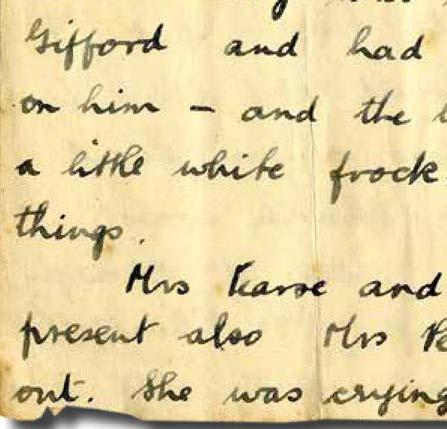 Gifford and had
on him – and the
a little white frock
things.
Mrs Pearse and
present also Mrs Pe
out. She was crying